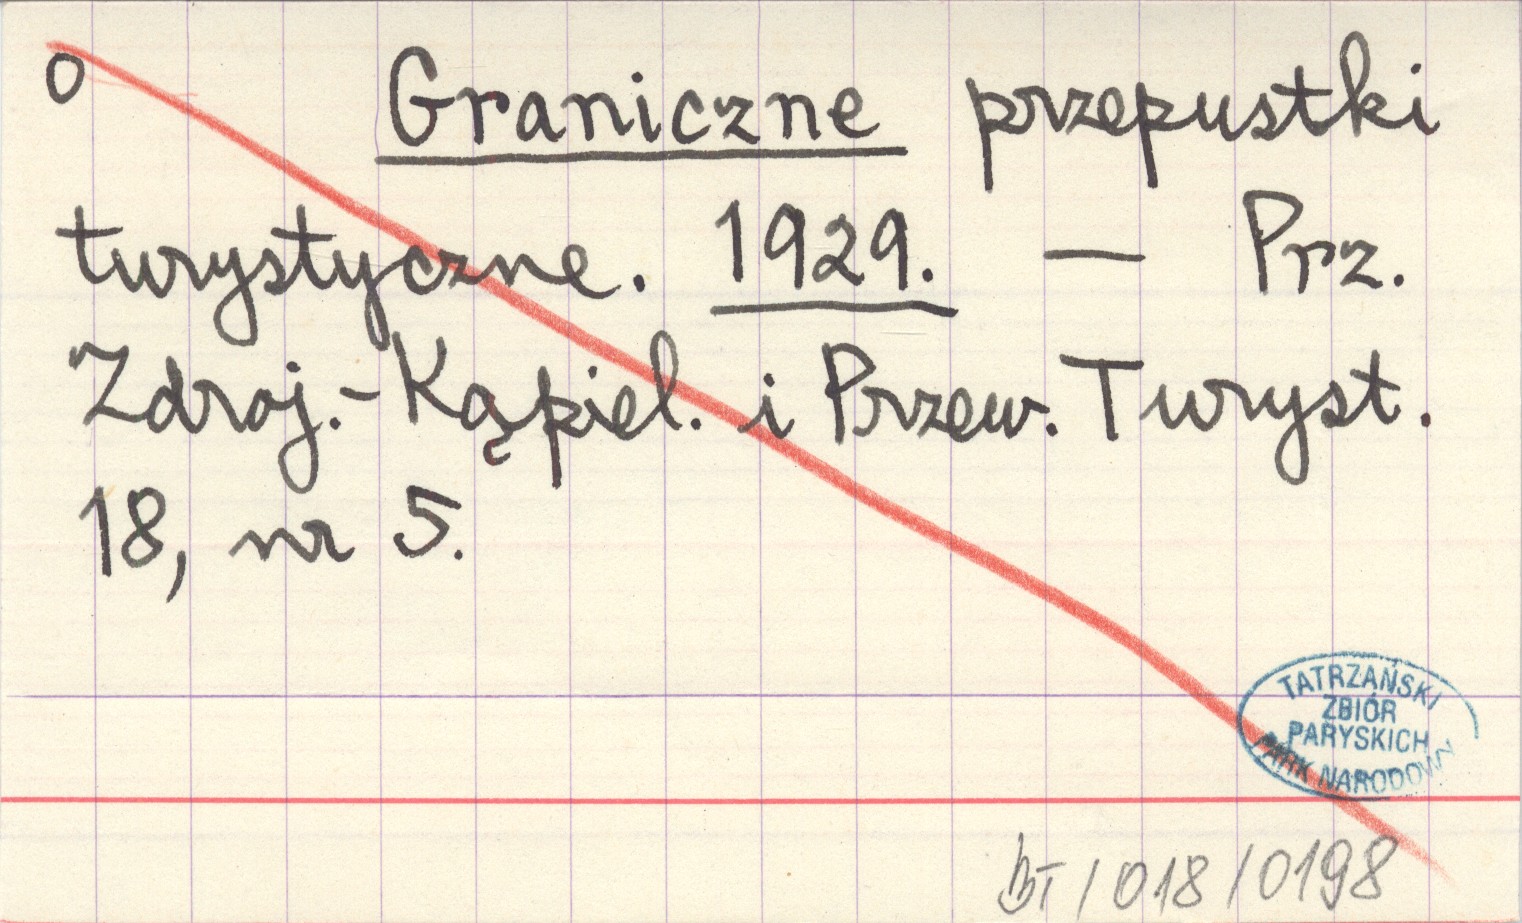 o Graniczne przepustki
turystyczne. 1929. — Prz.
Zdroj.-Kąpiel. i Przew. Turyst.
18, nr 5.
TATRZAŃSKI
ZBIÓR
PARYSKICH
PARK NARODOWY
BT/018/0198